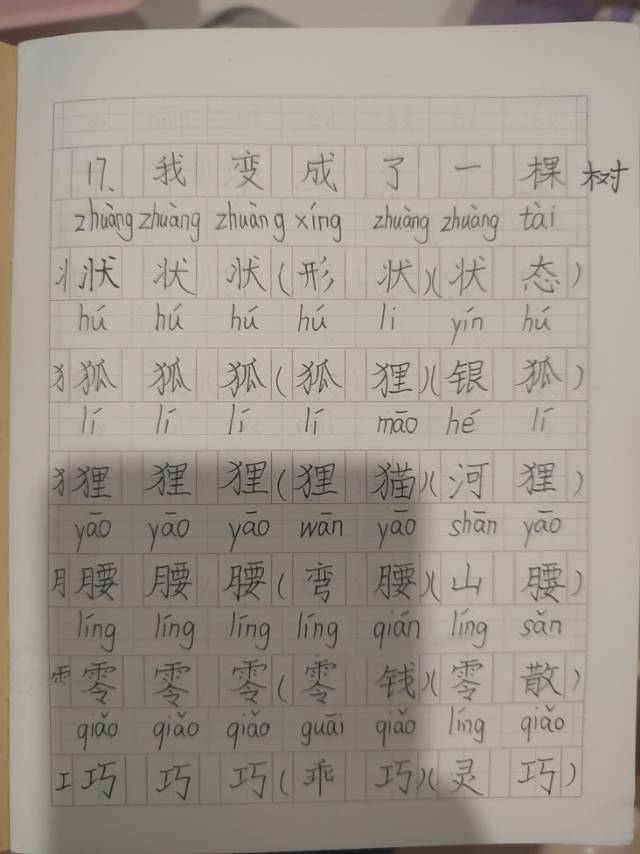 17、我变成了一棵树
zhuàng zhuàng zhuàng xíng zhuàng zhuàng tài
丬状 状 状(形状)(状态)
hú hú hú hú li yín hú
犭狐 狐 狐(狐狸)(银狐)
lí lí lí lí māo hé lí
犭狸 狸 狸(狸猫)(河狸)
yāo yāo yāo wān yāo shān yāo
月腰 腰 腰(弯腰)(山腰)
líng líng líng líng qián líng sǎn
⻗零 零 零(零钱)(零散)
qiǎo qiǎo qiǎo guāi qiǎo líng qiǎo
工巧 巧 巧(乖巧)(灵巧)